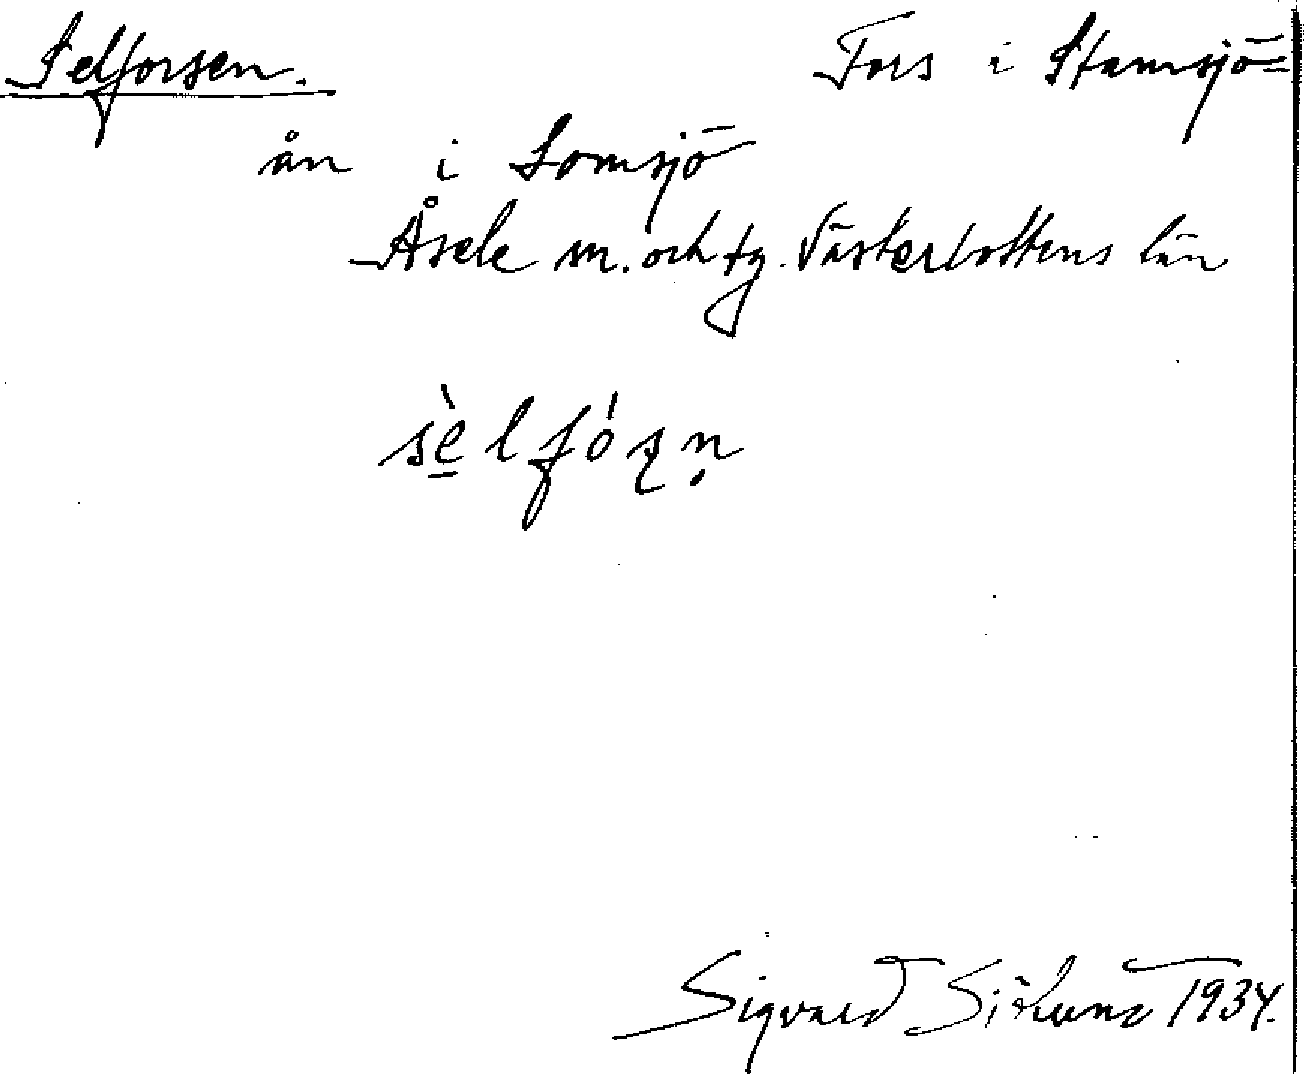 Selforsen. Fors i Stamsjö=
ån i Lomsjö
Åsele sn. och tg. Västerbottens län
sè̱lfórs̢ṇ
Sigvard Sjölund 1934.